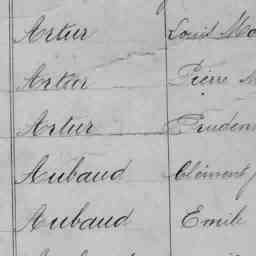 Artur Louis
Artur Pierre
Artur
Aubaud Clément
Aubaud Emile